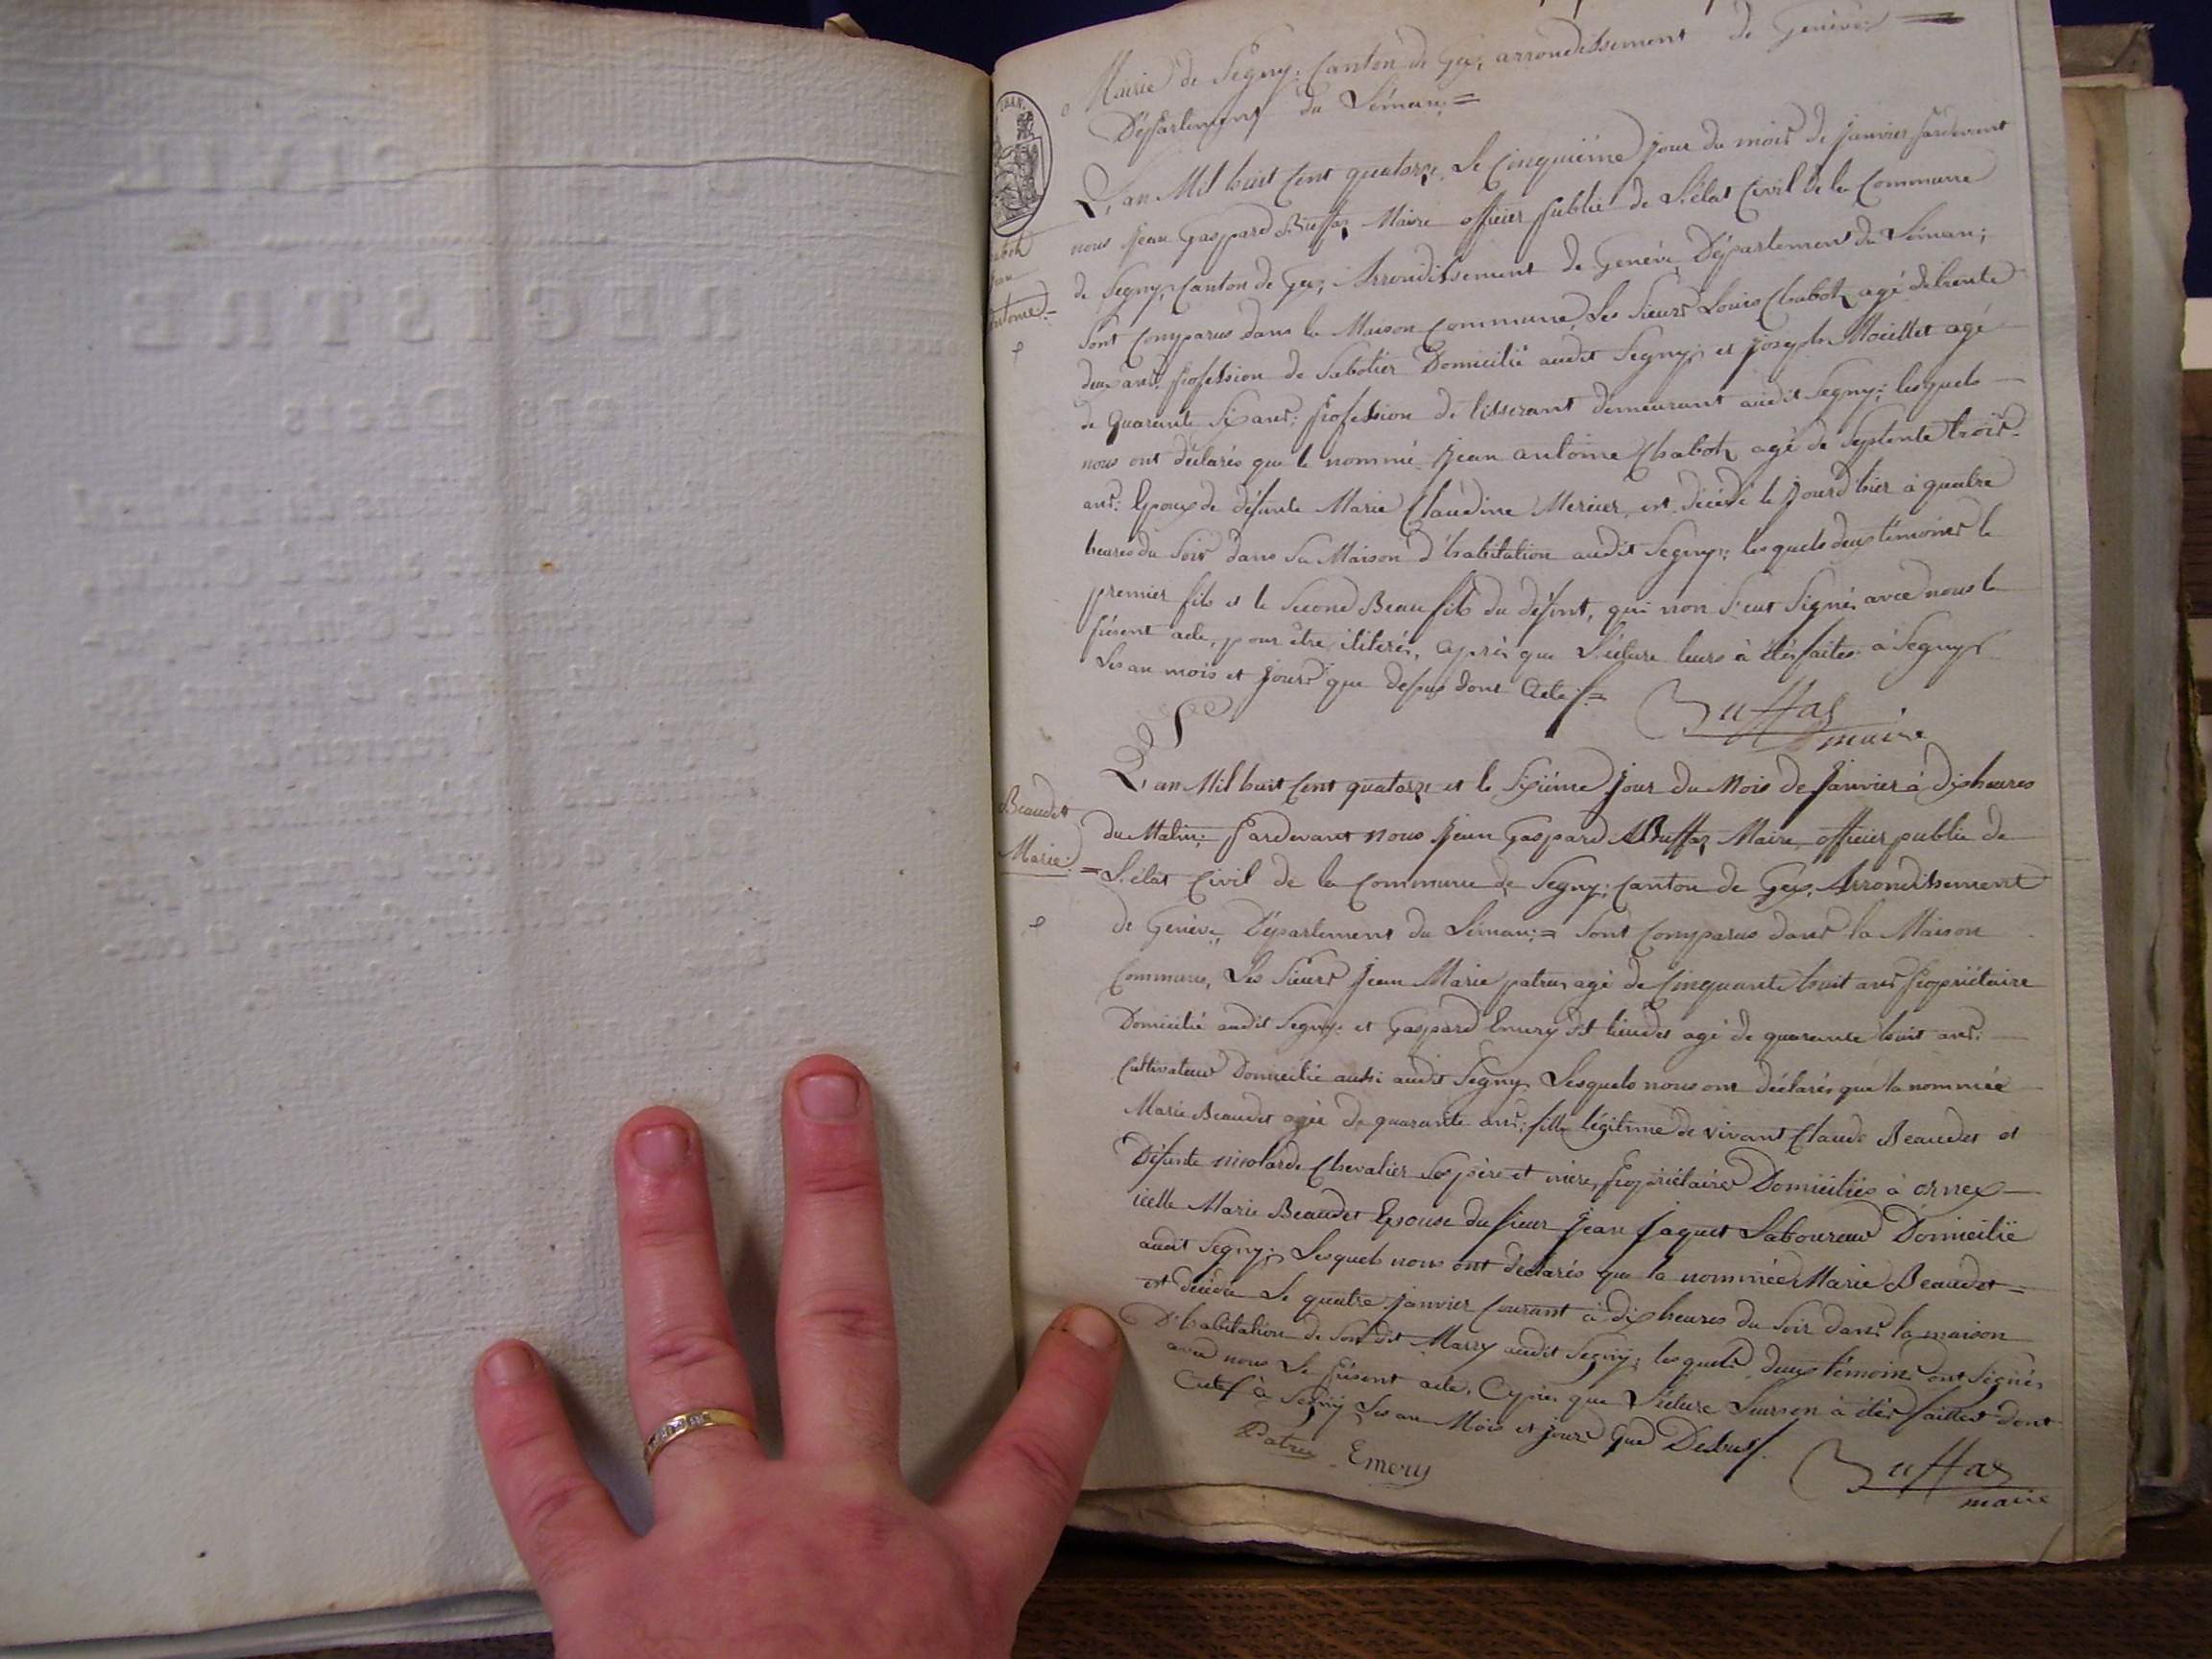 Mairie de Segny; Canton de Gex, arrondissement de Genève
Département du Léman;=
L'an Mil huit Cent quatorze, Le Cinquième jour du mois de janvier pardevant
nous Jean Gaspard Buffaz Maire officier public de L'état Civil de la Commune
de Segny, Canton de Gex, Arrondissement de Genève, Département du Léman;
Jean
Antoine=
Sont Comparus dans la Maison Commune, Les Sieurs Louis Chaboz agé de trente
deux ans, profession de Sabotier Domicilié audit Segny; et joseph Moillet agé
de Quarante Six ans; profession de tisserant demeurant audit Segny; lesquels
nous ont déclarés que le nommé Jean antoine Chaboz agé de Septente trois
ans: Epoux de défunte Marie Claudine Mercier, est décédé le jourd'hier à quatre
heures du Soir dans Sa Maison d'habitation audit Segny; lesquels deux témoins le
premier fils et le Second Beau fils du défunt, qui non S'eut Signés avec nous le
présent acte, pour être, illiterés, Après que Lécture leurs à étés faites à Segny
Les an mois et jours que dessus dont Acte/=
Buffaz
maire
L'an Mil huit Cent quatorze et le Sixième jour du Mois de Janvier à dix heures
Beaudet
Marie=
du Matin; Pardevant nous Jean Gaspard Buffaz Maire, officier public de
L'état Civil de la Commune de Segny; Canton de Gex, Arrondissement
de Genève, Département du Léman;= Sont Comparus dans la Maison
Commune, Les Sieurs Jean Marie patru agé de Cinquante huit ans Propriétaire
Domicilié audit Segny: et Gaspard Emery agé de quarante huit ans:
Cultivateur Domicilié aussi audit Segny, Lesquels nous ont déclarés que la nommée
Marie Beaudet agée de quarante ans; fille légitime de vivant Claude Beaudet et
Défunte nicolarde Chevalier Ses père et mère, Propriétaires Domiciliés à ornex
icelle Marie Beaudet Epouse du Sieur Jean Jaquet Laboureur Domicilié
audit Segny; Lesquels nous ont déclarés que la nommée Marie Beaudet=
est décédée Le quatre janvier Courant à dix heures du Soir dans la maison
D'habitation de Son dit Marry audit Segny; lesquels deux témoins ont Signés
avec nous Le Présent acte, Après que Lécture Leurs en à étés faittes dont
Acte/ à Segny Les an Mois et jours Que Dessus/.
Patru Emery Buffaz
maire